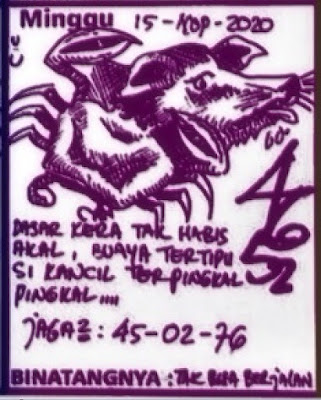 Minggu 15-NOP-2020
60
4652
DASAR KERA TAK HABIS
AKAL, BUAYA TERTIPU
SI KANCIL TERPINGKAL
PINGKAL....
JAGA2 : 45-02-76
BINATANGNYA : TAK BISA BERJALAN